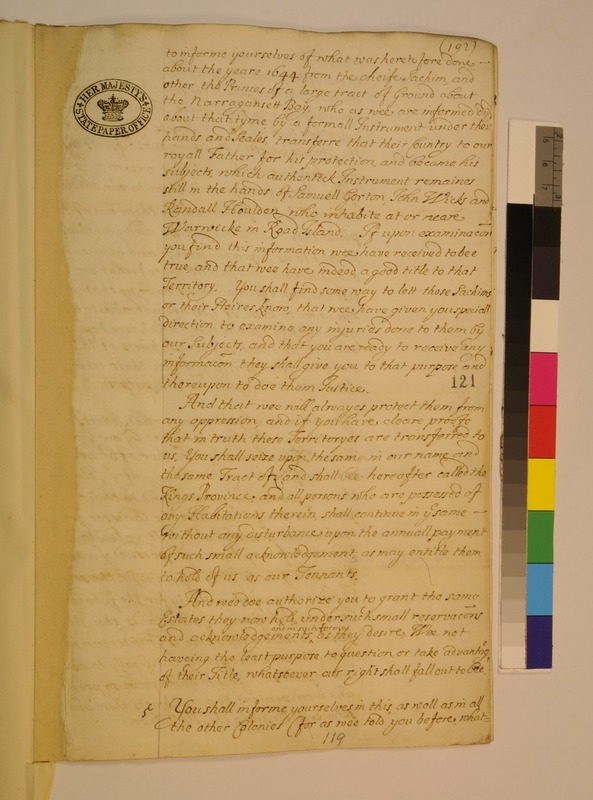 (192)
to informe yourselves of what was heretofore done
about the yeare 1644 from the cheife Sachim and
other the Princes of a large tract of Ground about
the Narragansett Bay, who as wee are informed did
about that tyme by a formall Instrument under their
hands and Seales, transferre that their Country to our
royall Father for his protection and became his
subjects, which authentick Instrument remaines
still in the hands of Samuell Gorton, John Wicks and
Randall Houlden, who inhabite at or neare
Warwicke in Road Island. If upon examinacon
you find this information wee have received to bee
true, and that wee have indeed a good title to that
Territory. You shall find some way to lett those Sachims
or their Heires know, that wee have given you speciall
direction to examine any injuries done to them by
our Subjects, and that you are ready to receive any
informacon they shall give you to that purpose and
thereupon to doe them Justice.
121
And that wee will alwayes protect them from
any oppression, and if you have cleare proofe
that in truth these Territoryes are transferred to
us, You shall seize upon the same in our name, and
the same Tract of Land shall bee hereafter called the
Kings Province, and all persons who are possessed of
any Habitations therein, shall continue in ye same
without any disturbance upon the annuall payment
of such small acknowledgement, as may entitle them
to hold of us as our Tennants.
And wee doe authorize you to grant the same
Estates they now hold, under such small reservacons
and in such formes
and acknowledgements, as they desire, Wee not
haveing the least purpose to question or take advantage
of their Title, whatsoever our right shall fall out to bee.
5
You shall informe yourselves in this as well as in all
the other Colonies (for as wee told you before, what
119
HER MAJESTY'S
STATE PAPER OFFICE